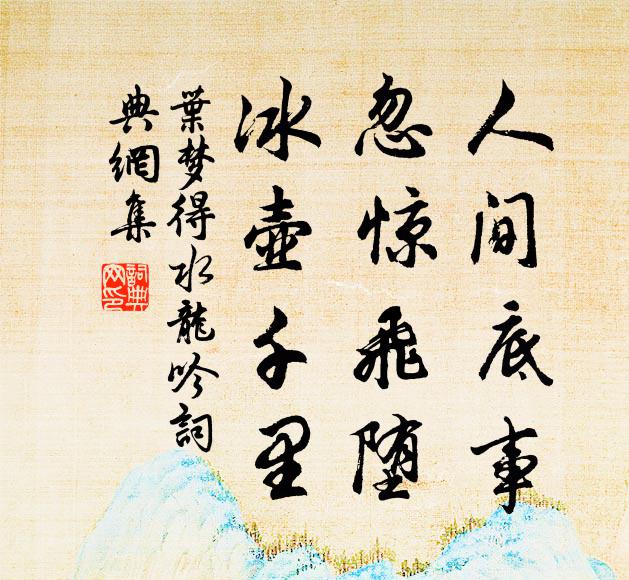 人间底事
忽惊飞堕
冰壶千里
葉梦得水龍吟詞
典網集
詞典
网印